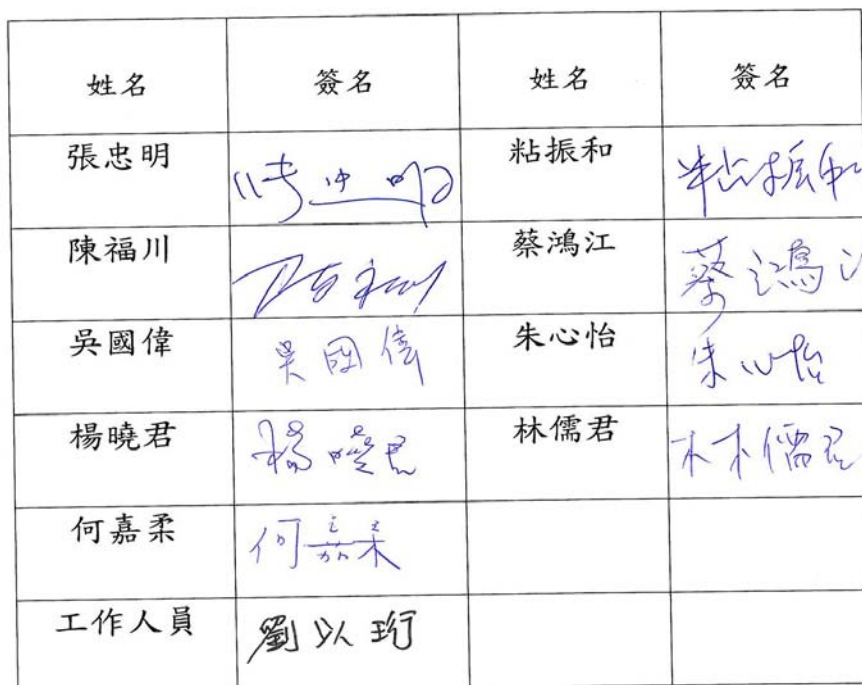 姓名 簽名 姓名 簽名
張忠明 張忠明 粘振和 粘振和
陳福川 陳福川 蔡鴻江 蔡鴻江
吳國偉 吳國偉 朱心怡 朱心怡
楊曉君 楊曉君 林儒君 林儒君
何嘉柔 何嘉柔
工作人員 劉以珩